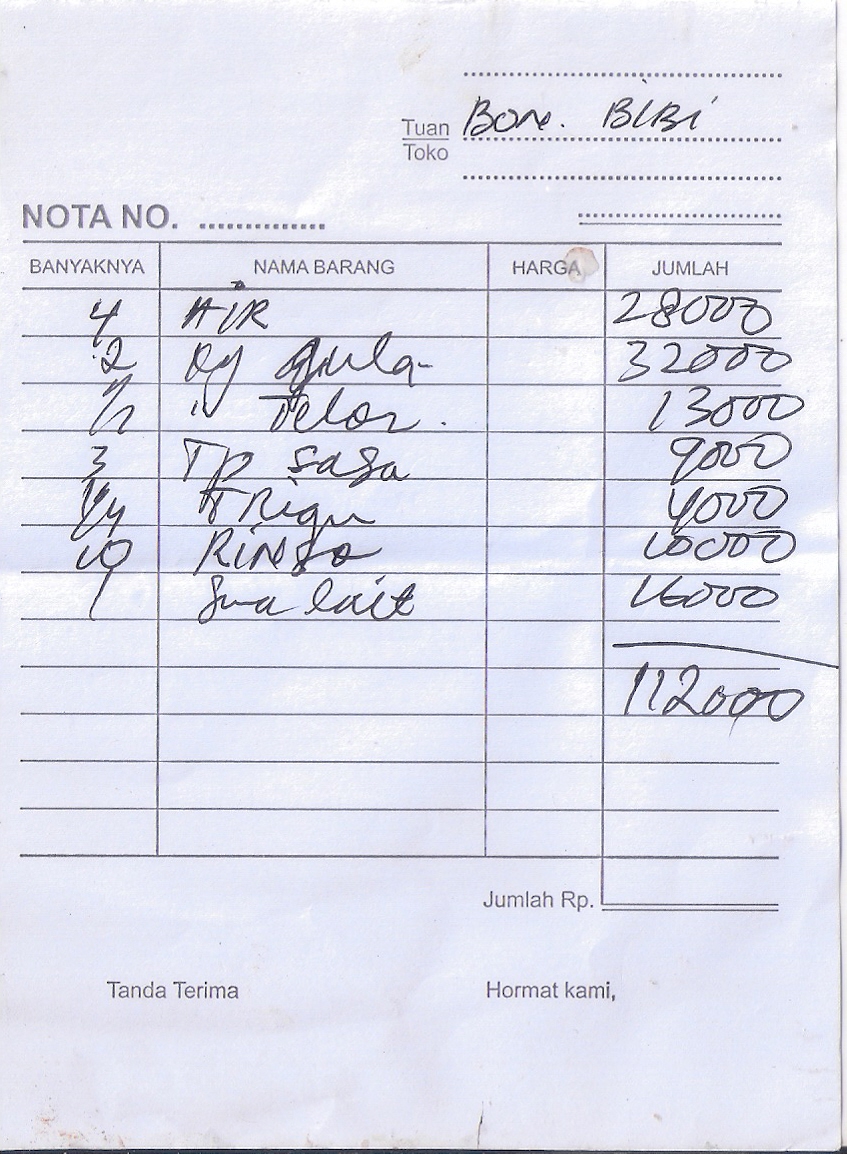 Tuan Bon. BiBi
Toko
NOTA NO. ..............
BANYAKNYA NAMA BARANG HARGA JUMLAH
4 AIR 28000
2 kg gula 32000
1/2 " Telor. 13000
3 Tp sasa 9000
1/4 TRigu 4000
10 RINSo 10000
1 lait 16000
112000
Jumlah Rp.
Tanda Terima Hormat kami,